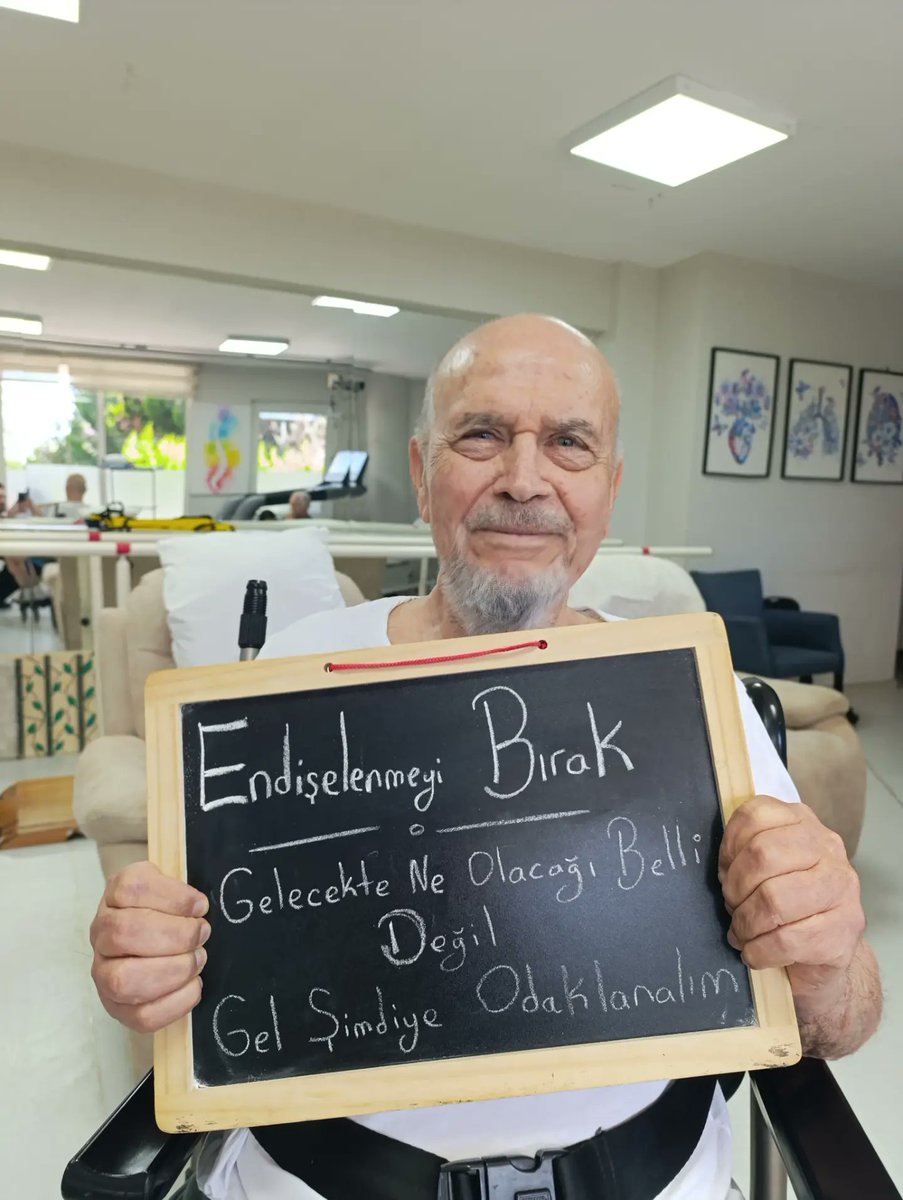 Endişelenmeyi Bırak
Gelecekte Ne Olacağı Belli
Değil
Gel Şimdiye Odaklanalım